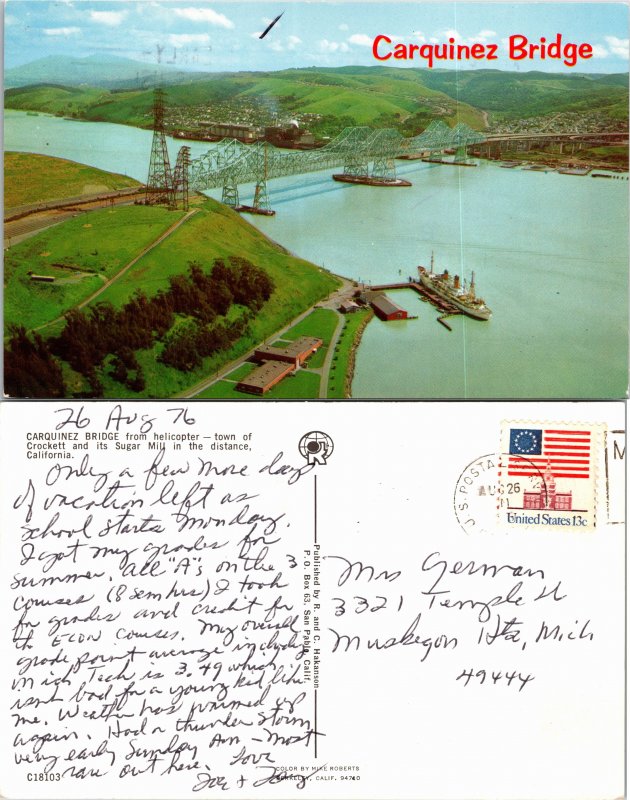 Carquinez Bridge
26 Aug 76
CARQUINEZ BRIDGE from helicopter — town of
Crockett and its Sugar Mill in the distance,
California.
Only a few more days
of vacation left as
school starts Monday.
I got my grades for
summer. all "A's" on the 3
courses (8 sem hrs) I took
for grades and credit for
th ECON courses. My overall
grade point average including
Mich Tech is 3.49 which
isnt bad for a young kid like
me. Weather has warmed up
again. Had a thunder storm
very early Sunday Am - most
rare out here. Love
Joe +
C18103
R
Published by R. and C. Hakanson
P. O. Box 63, San Pablo, Calif.
COLOR BY MIKE ROBERTS
BERKELEY, CALIF. 94710
U.S. POSTAL
AUG 26
United States 13c
M
Mrs German
3321 Temple St
Muskegon Hts, Mich
49444